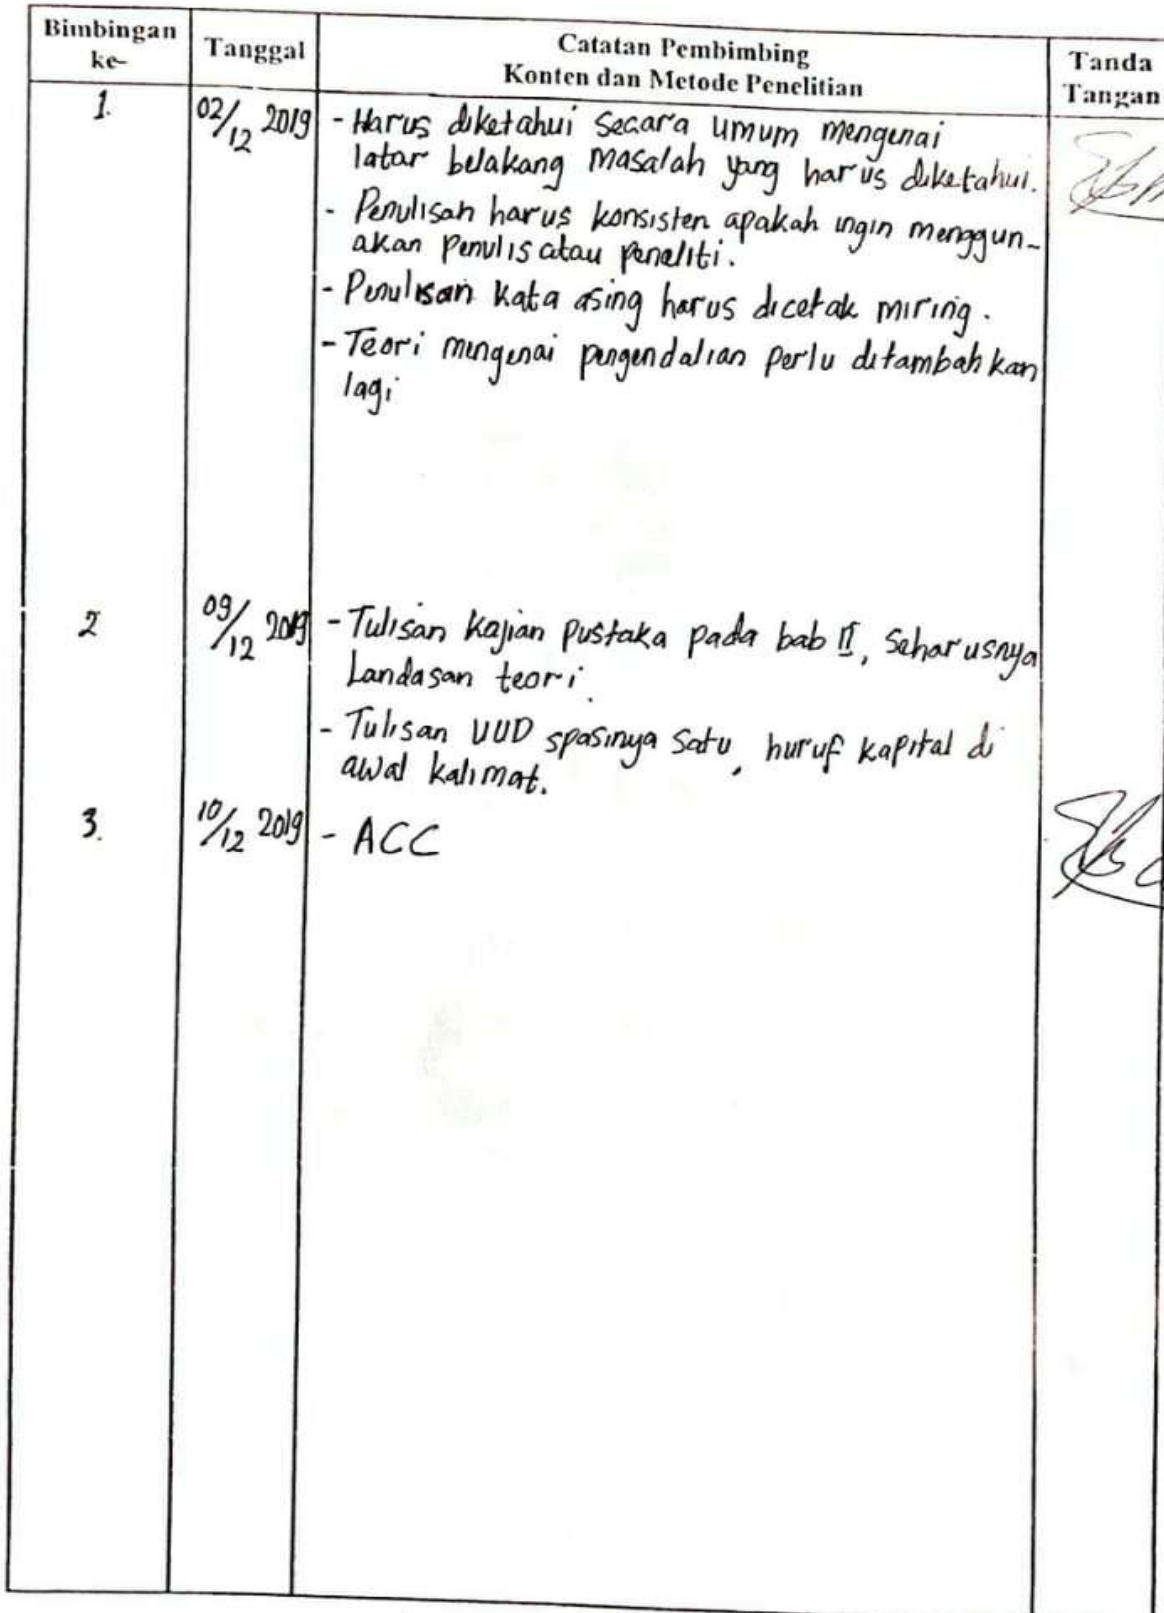 Bimbingan ke-
Tanggal
Catatan Pembimbing
Konten dan Metode Penelitian
Tanda Tangan
1. 02/12 2019 - Harus diketahui secara umum mengenai
latar belakang masalah yang harus diketahui.
- Penulisan harus konsisten apakah ingin menggun-
akan penulis atau peneliti.
- Penulisan kata asing harus dicetak miring.
- Teori mengenai pengendalian perlu ditambahkan
lagi
2 09/12 2019 - Tulisan kajian pustaka pada bab II, seharusnya
Landasan teori.
- Tulisan UUD spasinya satu, huruf kapital di
awal kalimat.
3. 10/12 2019 - ACC